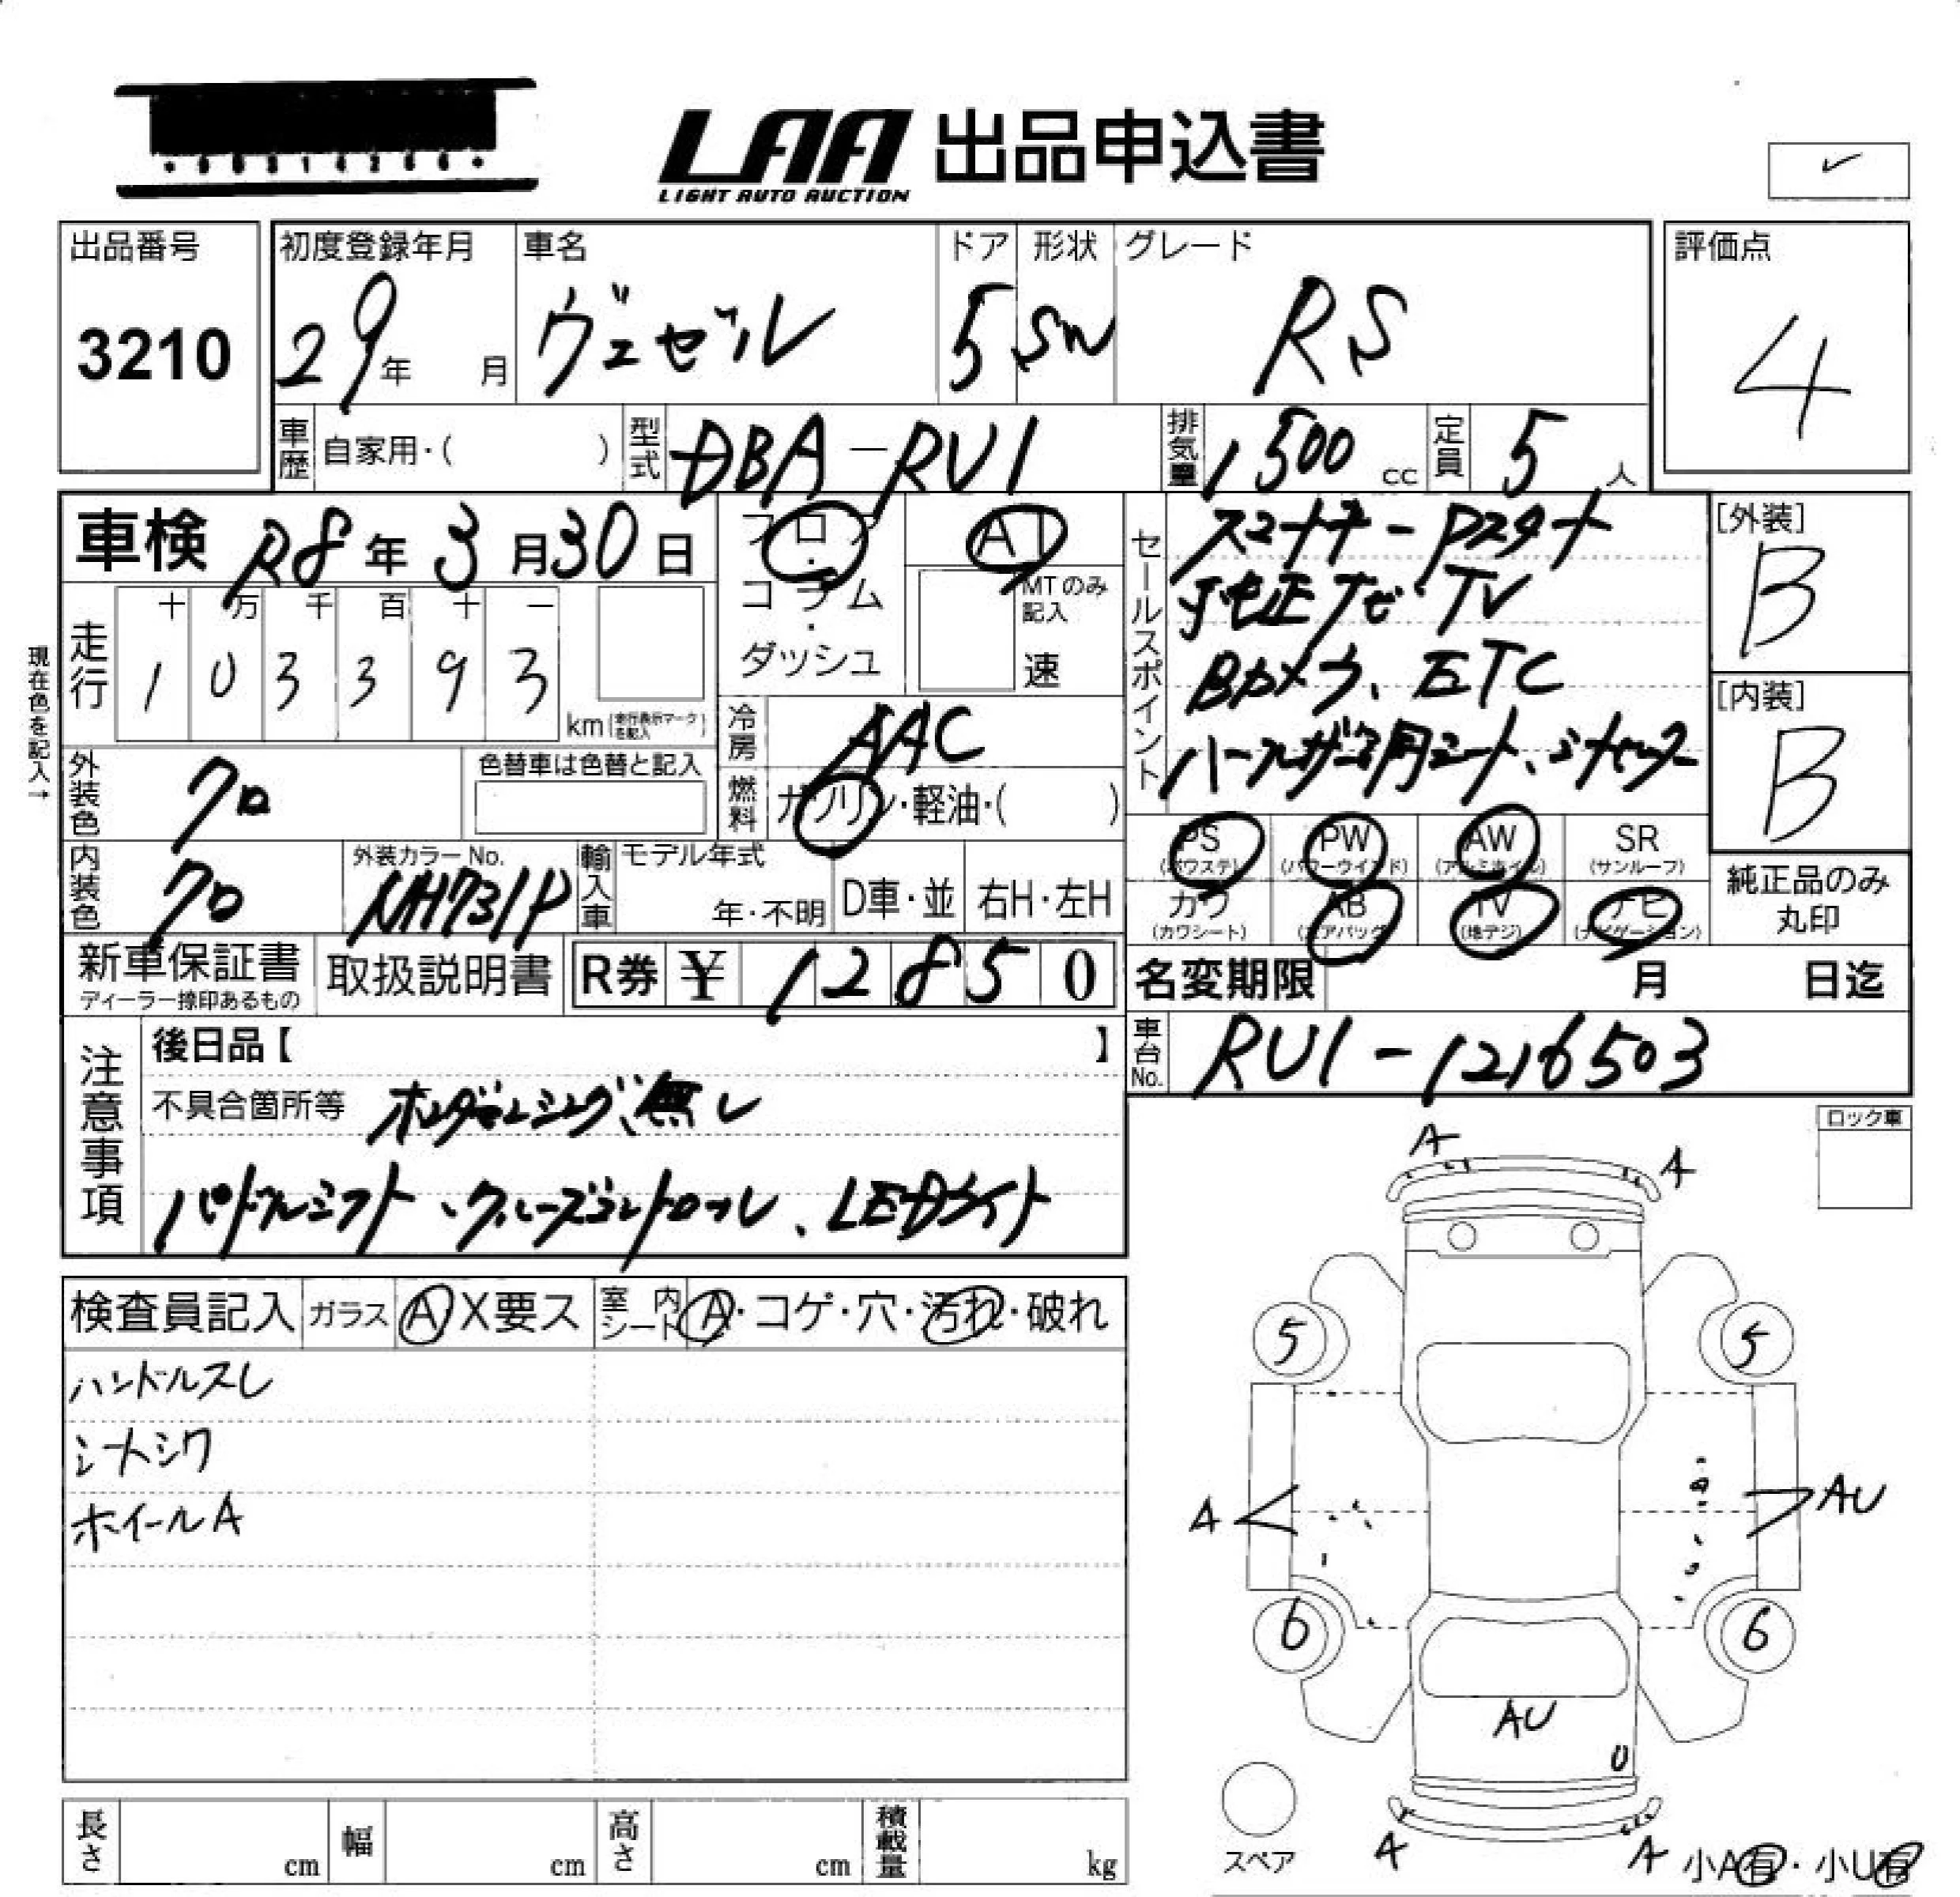 LAA 出品申込書
LIGHT AUTO AUCTION
出品番号
3210
初度登録年月
29年 月
車名
ヴェゼル
ドア
5
形状
SW
グレード
RS
評価点
4
車歴 自家用・( )
型式 DBA-RU1
排気量 1500 cc
定員 5 人
車検 R8年 3月30日
フロア・コラム・ダッシュ
AT
MTのみ記入
速
セールスポイント
スマートキー Pスタート
純正ナビ TV
Bカメラ、ETC
ハーフレザー専用シート、
[外装]
B
[内装]
B
現在色を記入→
走行
十 万 千 百 十 一
1 0 3 3 9 3
km(走行表示マークを記入)
冷房 AAC
燃料 ガソリン・軽油・( )
外装色 クロ
色替車は色替と記入
内装色 クロ
外装カラーNo.
NH731P
輸入車
モデル年式
年・不明
D車・並
右H・左H
PS
(パワステ)
PW
(パワーウインド)
AW
(アルミホイル)
SR
(サンルーフ)
カワ
(カワシート)
AB
(エアバック)
TV
(地デジ)
ナビ
(ナビゲーション)
純正品のみ
丸印
新車保証書
ディーラー捺印あるもの
取扱説明書
R券 ¥ 12850
名変期限 月 日迄
車台No. RU1-1216503
注意事項
後日品【 】
不具合箇所等 ホンダセンシング、無し
パドルシフト、クルーズコントロール、LEDライト
ロック車
検査員記入
ガラス A X要ス
室内シート A・コゲ・穴・汚れ・破れ
ハンドルスレ
シートシワ
ホイールA
A
A
5
5
A
AU
6
6
AU
U
A
A
スペア
小A有・小U有
長さ cm
幅 cm
高さ cm
積載量 kg